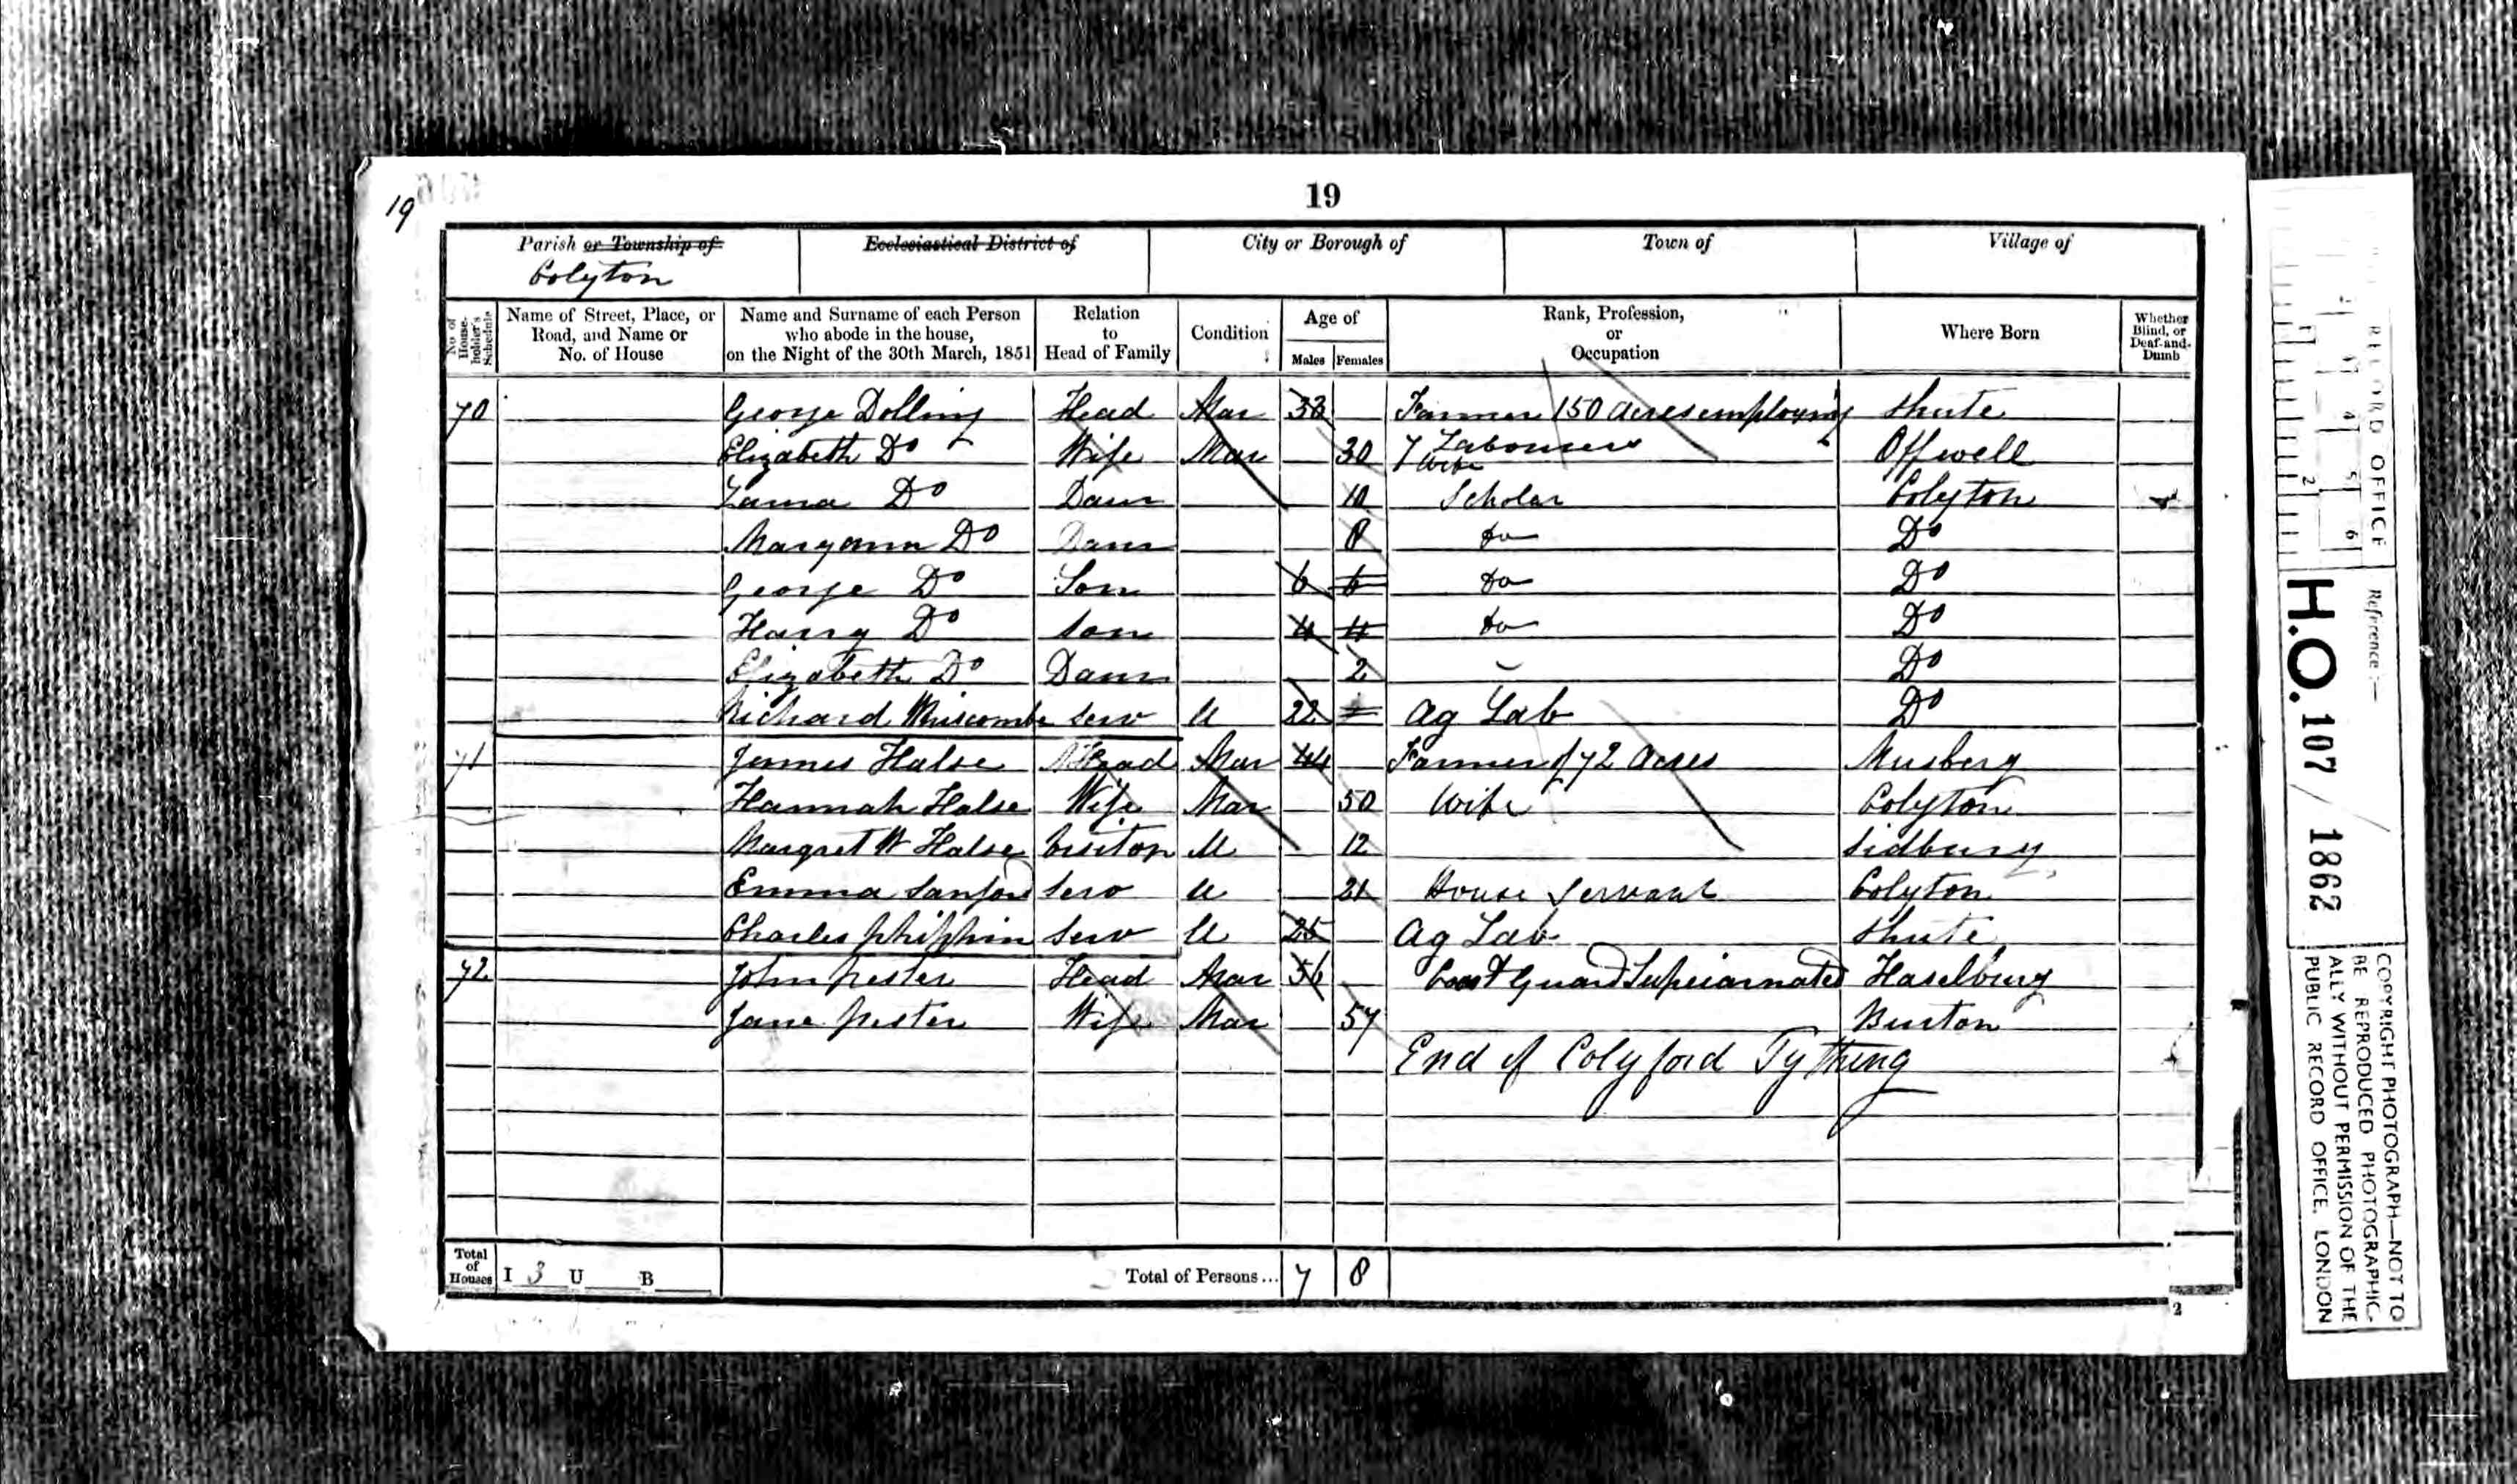 19
19
Parish or Township of
Colyton
Ecclesiastical District of
City or Borough of
Town of
Village of
No of House-holder's Schedule
Name of Street, Place, or Road, and Name or No. of House
Name and Surname of each Person who abode in the house, on the Night of the 30th March, 1851
Relation to Head of Family
Condition
Age of
Males Females
Rank, Profession, or Occupation
Where Born
Whether Blind, or Deaf-and-Dumb
70 George Dolling Head Mar 33 Farmer 150 acres employing Shute
Elizabeth Do Wife Mar 30 7 Labourers Wife Offwell
Do Daur 10 Scholar Colyton
Maryann Do Daur 8 do Do
George Do Son 6 6 do Do
Harry Do Son 4 4 do Do
Elizabeth Do Daur 2 Do
Richard Serv U 22 Ag Lab Do
71 James Halse Head Mar 44 Farmer of 72 Acres Musbery
Hannah Halse Wife Mar 50 Wife Colyton
Margret W Halse 12 Sidbury
Emma Sanford Serv U 21 House Servant Colyton
Charles Serv U 25 Ag Lab Shute
72 John Pester Head Mar 56 Coast Guard Haselbury
Jane Pester Wife Mar 57 Burton
End of Colyford Tything
Total of Houses I 3 U B
Total of Persons... 7 8
2
RECORD OFFICE
Reference:—
H.O. 107 / 1862
COPYRIGHT PHOTOGRAPH—NOT TO
BE REPRODUCED PHOTOGRAPHIC-
ALLY WITHOUT PERMISSION OF THE
PUBLIC RECORD OFFICE, LONDON